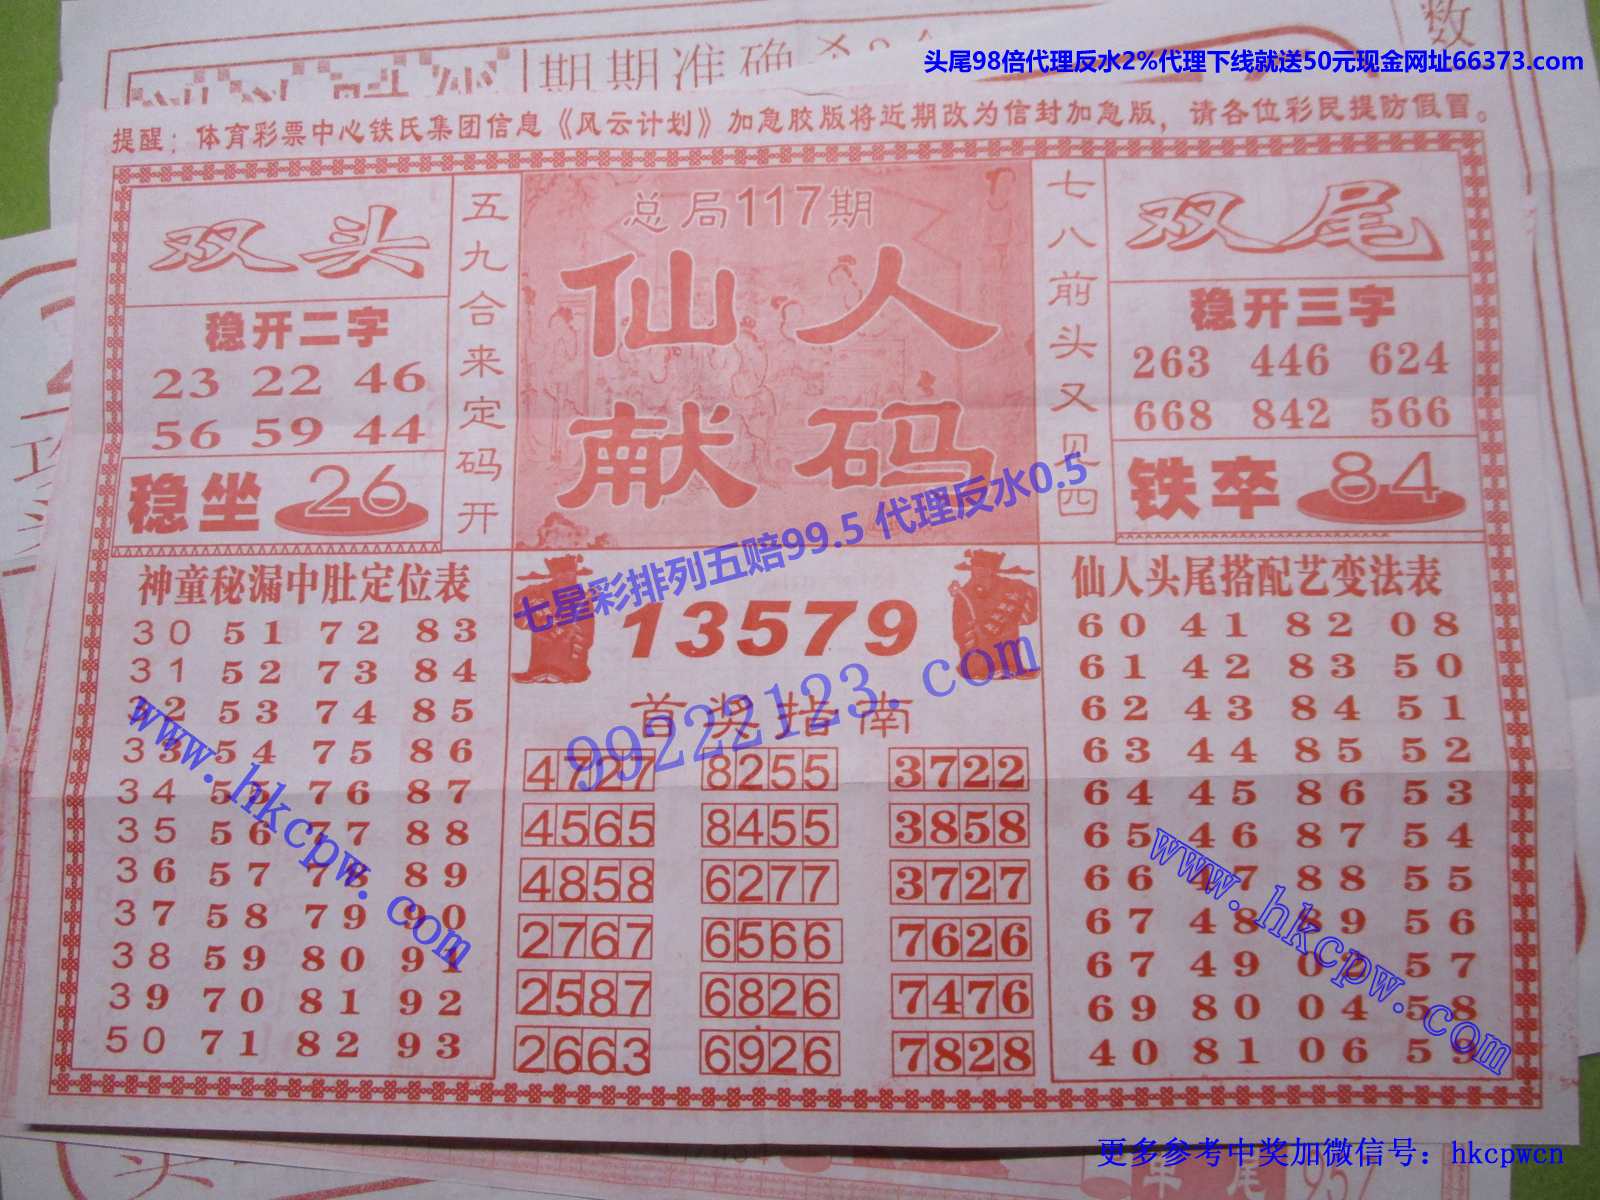 期期准确
数
头尾98倍代理反水2%代理下线就送50元现金网址66373.com
提醒：体育彩票中心铁氏集团信息《风云计划》加急胶版将近期改为信封加急版，请各位彩民提防假冒。
双头
稳开二字
23 22 46
56 59 44
稳坐 26
五九合来定码开
总局117期
仙人
献码
七八前头又见四
双尾
稳开三字
263 446 624
668 842 566
铁卒 84
七星彩排列五赔99.5 代理反水0.5
神童秘漏中肚定位表
30 51 72 83
31 52 73 84
32 53 74 85
33 54 75 86
34 55 76 87
35 56 77 88
36 57 78 89
37 58 79 90
38 59 80 91
39 70 81 92
50 71 82 93
www.hkcpw.com
13579
99222123.com
首奖指南
4727 8255 3722
4565 8455 3858
4858 6277 3727
2767 6566 7626
2587 6826 7476
2663 6926 7828
仙人头尾搭配艺变法表
60 41 82 08
61 42 83 50
62 43 84 51
63 44 85 52
64 45 86 53
65 46 87 54
66 47 88 55
67 48 89 56
67 49 02 57
69 80 04 58
40 81 06 59
www.hkcpw.com
更多参考中奖加微信号：hkcpwcn
单尾 957